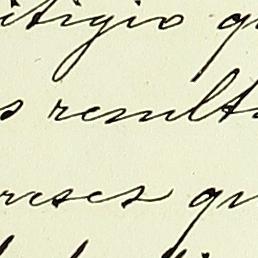 itigio q
s result
reses qu